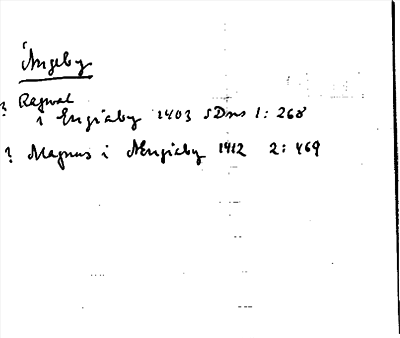 Ängeby
? Ragwal
i Engiaby 1403 SDns 1: 268
? Magnus i Ængiaby 1412 2: 469